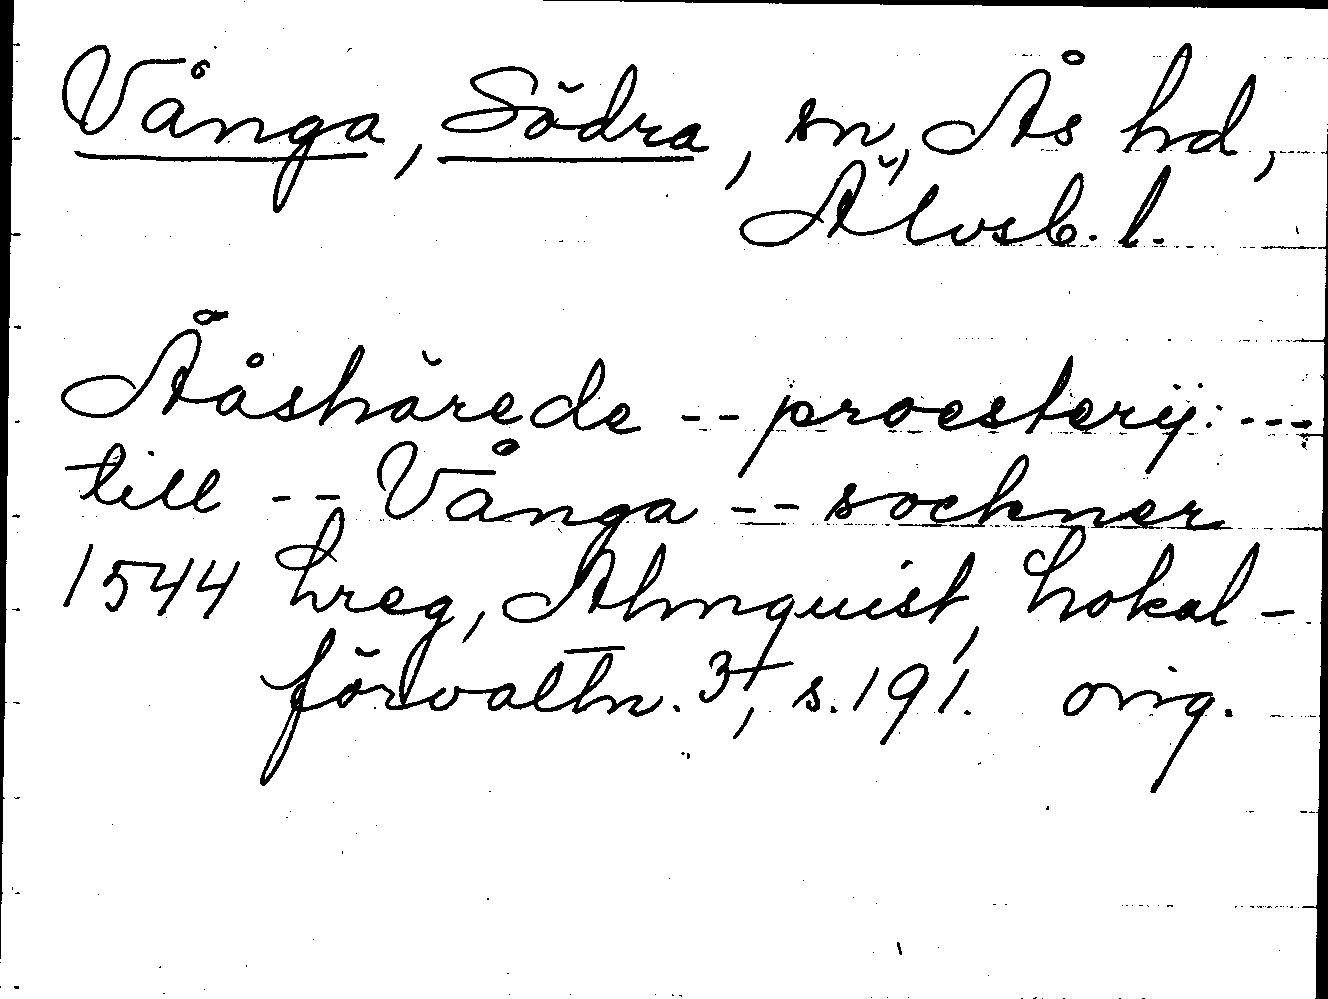 Vånga, Södra, sn, Ås hd,
Älvsb. l.
Ååshärede -- proesterij: ---
till -- Vånga -- sockner
1544 hreg, Almquist, Lokal-
förvaltn. 3, s. 191. orig.